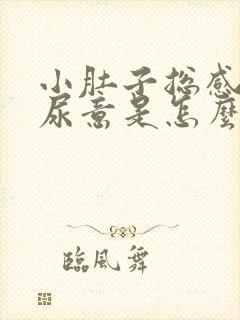 小肚子总感
尿意是怎麼
臨風舞